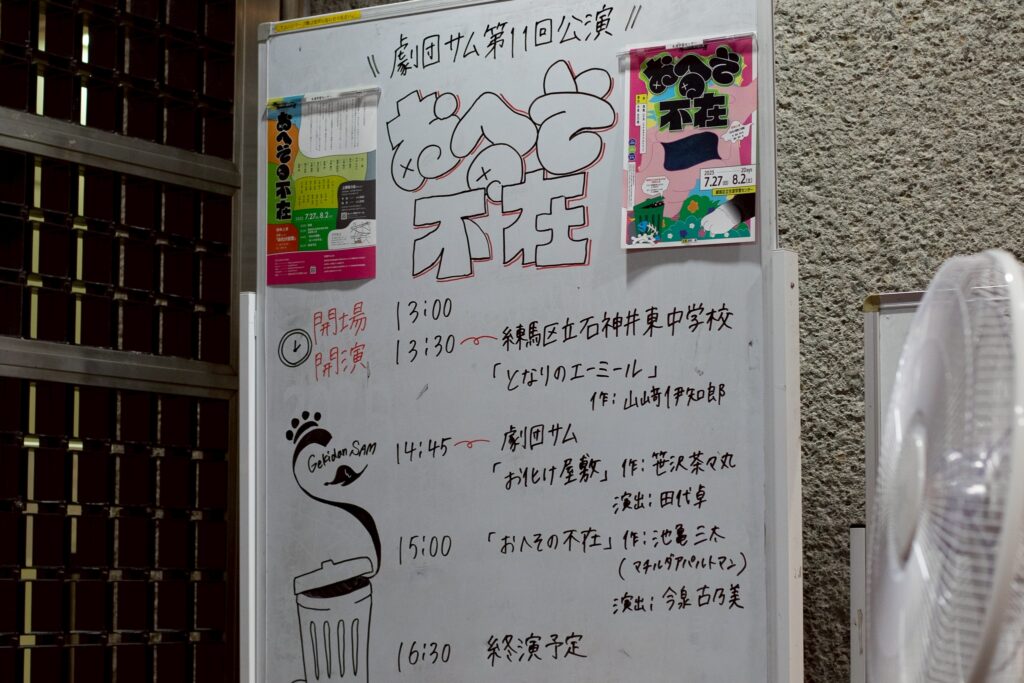 劇団サム第11回公演
おへそ
不在
おへそ
不在
2025 2Days
7.27(日) 8.2(土)
おへその不在
7.27 8.2
開場 13:00
開演 13:30 練馬区立石神井東中学校
「となりのエーミール」
作:山﨑伊知郎
Gekidan SAM
14:45 劇団サム
「お化け屋敷」作:笹沢茶々丸
演出:田代卓
15:00 「おへその不在」作:池亀三太
(マチルダアパルトマン)
演出:今泉古乃美
16:30 終演予定